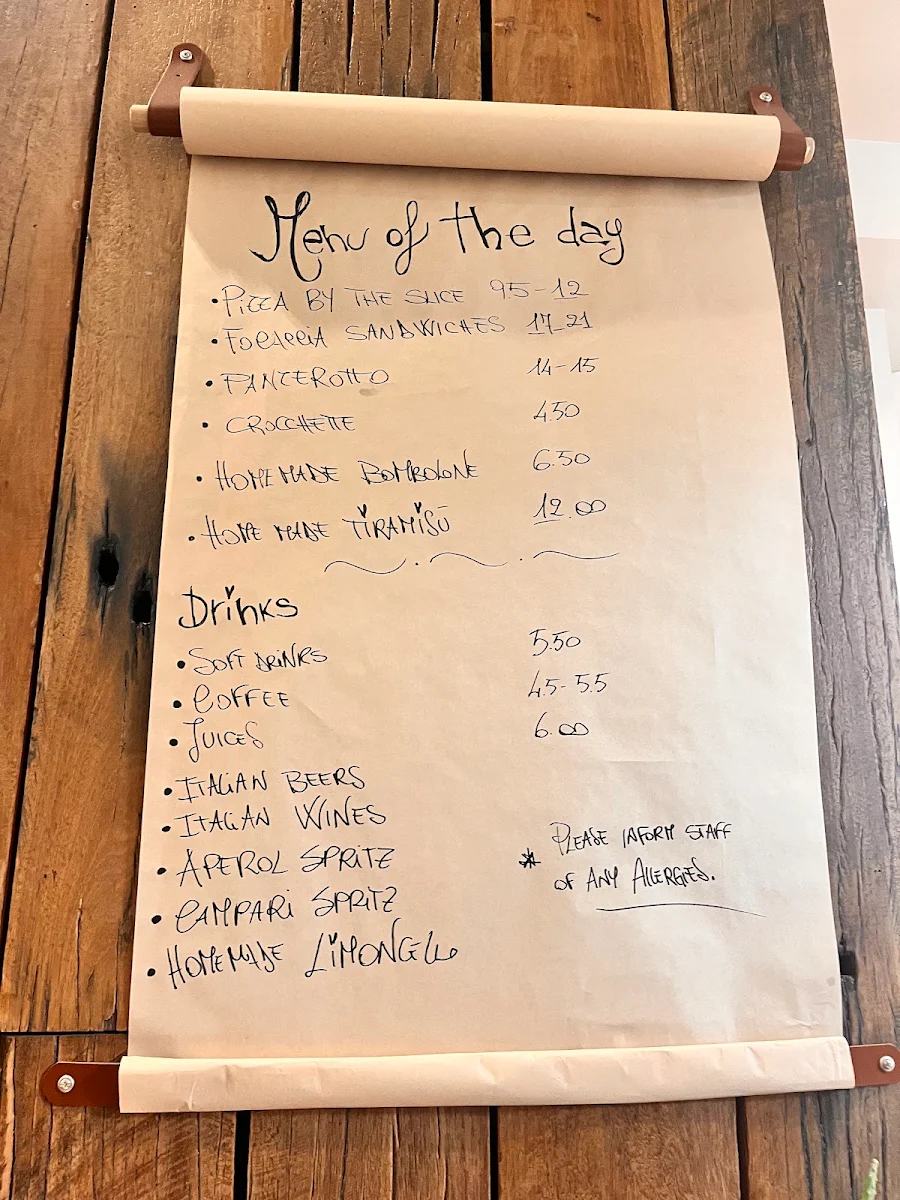 Menu of the day
• PIZZA BY THE SLICE 9.5-12
• FOCACCIA SANDWICHES 17-21
• PANZEROTTO 14-15
• CROCCHETTE 4.50
• HOMEMADE BOMBOLONE 6.50
• HOME MADE TIRAMISÙ 12.00
Drinks
• SOFT DRINKS 5.50
• COFFEE 4.5-5.5
• JUICES 6.00
• ITALIAN BEERS
• ITALIAN WINES
• APEROL SPRITZ
• CAMPARI SPRITZ
• HOMEMADE LIMONCELLO
* PLEASE INFORM STAFF
OF ANY ALLERGIES.